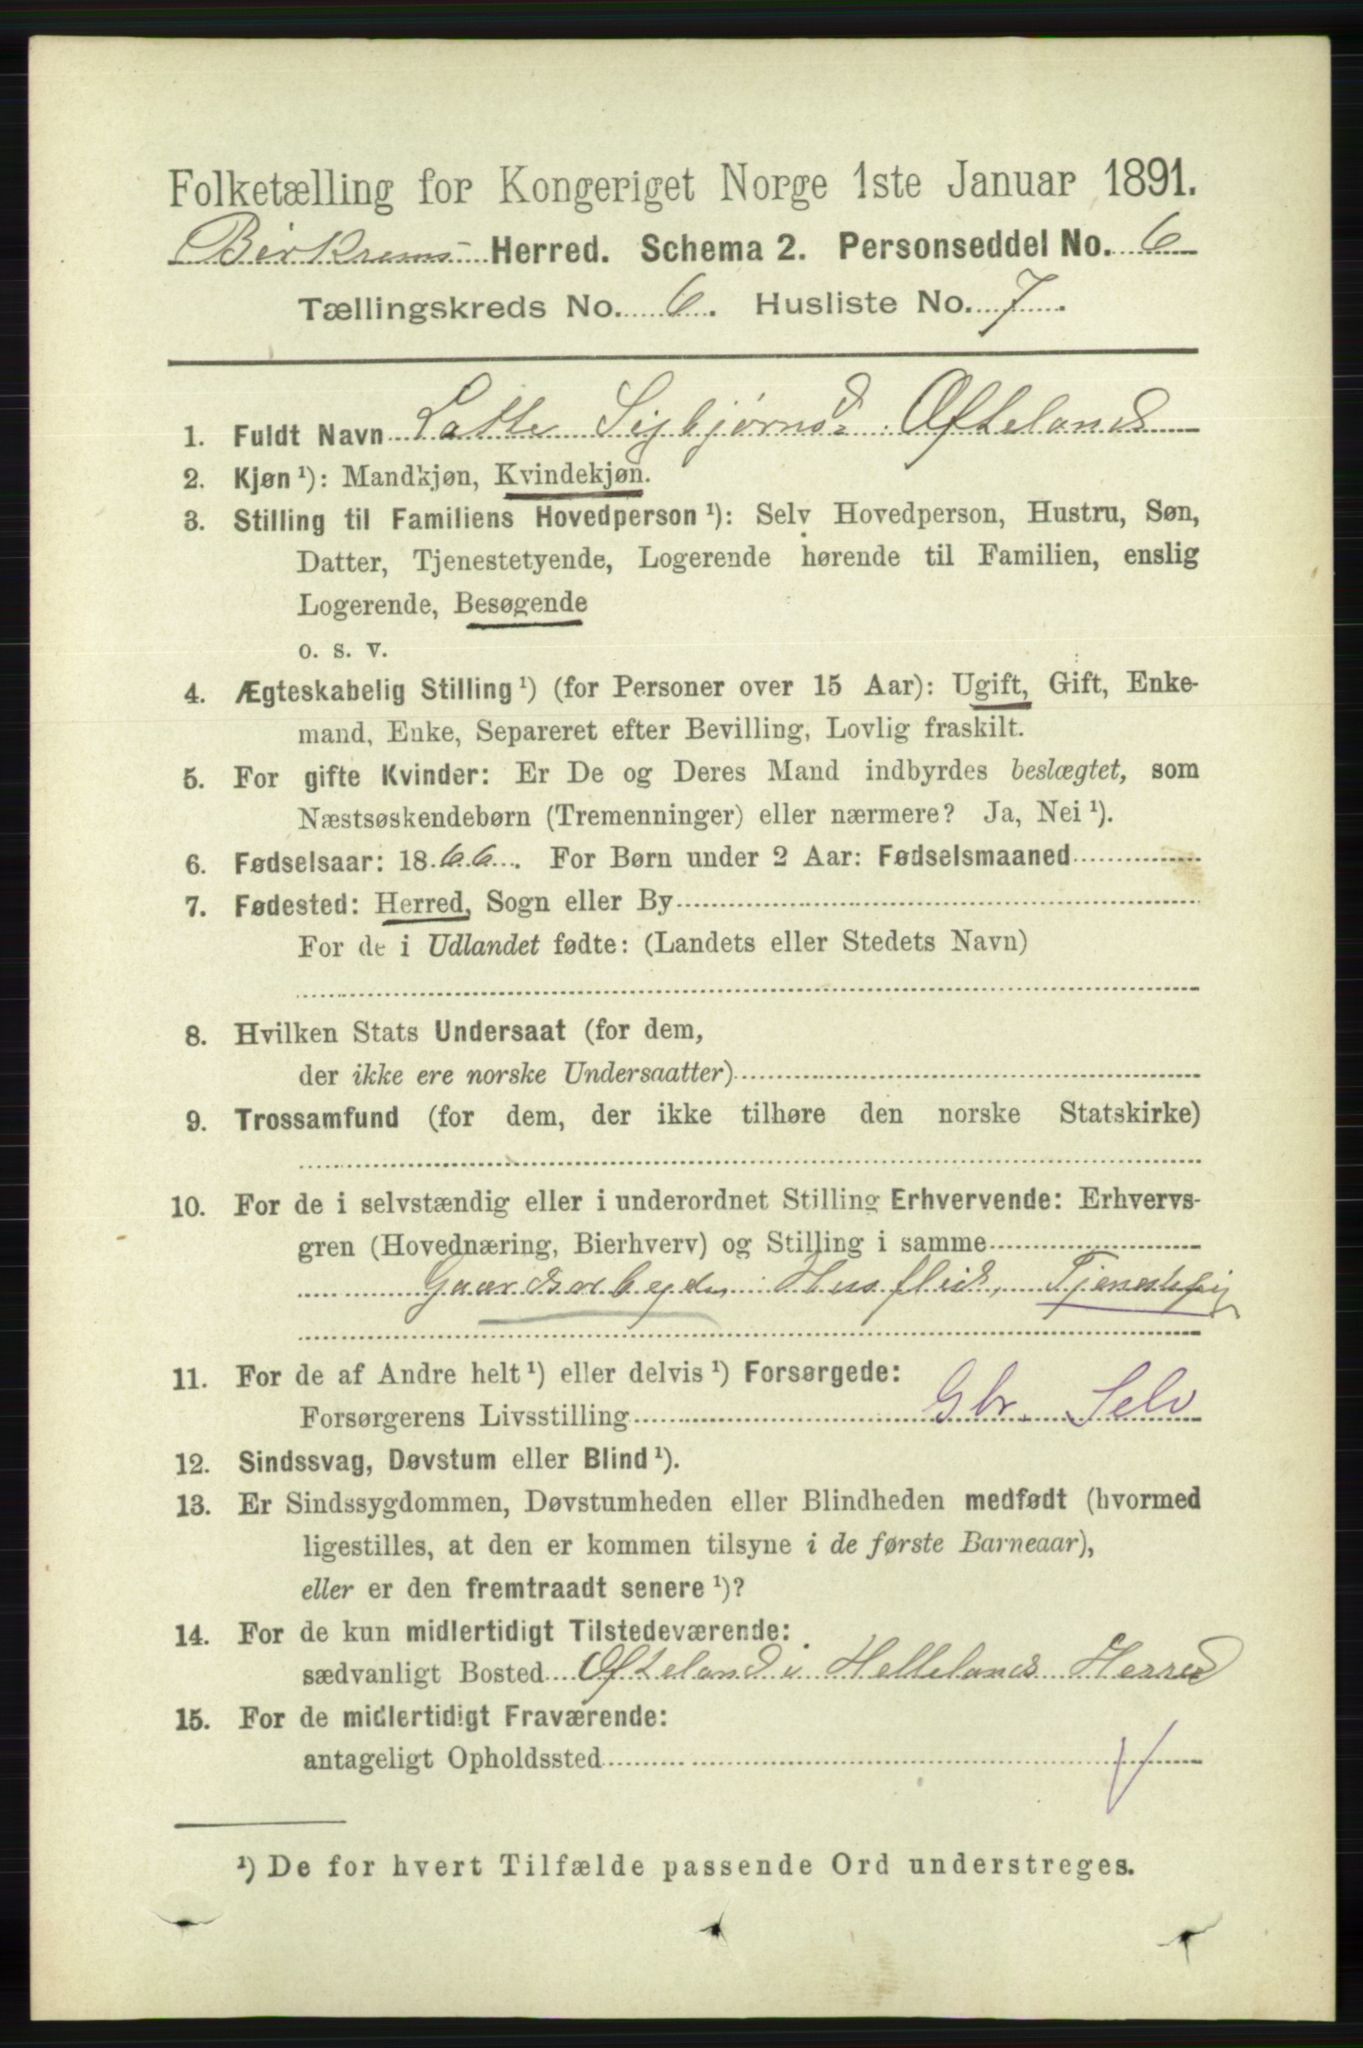 Folketælling for Kongeriget Norge 1ste Januar 1891.
Birkrems Herred. Schema 2. Personseddel No. 6
Tællingskreds No. 6. Husliste No. 7.
1. Fuldt Navn Lotte Sigbjørnsd. Øfteland
2. Kjøn ¹): Mandkjøn, Kvindekjøn.
3. Stilling til Familiens Hovedperson ¹): Selv Hovedperson, Hustru, Søn,
Datter, Tjenestetyende, Logerende hørende til Familien, enslig
Logerende, Besøgende
o. s. v.
4. Ægteskabelig Stilling ¹) (for Personer over 15 Aar): Ugift, Gift, Enke-
mand, Enke, Separeret efter Bevilling, Lovlig fraskilt.
5. For gifte Kvinder: Er De og Deres Mand indbyrdes beslægtet, som
Næstsøskendebørn (Tremenninger) eller nærmere? Ja, Nei ¹).
6. Fødselsaar: 1866. For Børn under 2 Aar: Fødselsmaaned
7. Fødested: Herred, Sogn eller By
For de i Udlandet fødte: (Landets eller Stedets Navn)
8. Hvilken Stats Undersaat (for dem,
der ikke ere norske Undersaatter)
9. Trossamfund (for dem, der ikke tilhøre den norske Statskirke)
10. For de i selvstændig eller i underordnet Stilling Erhvervende: Erhvervs-
gren (Hovednæring, Bierhverv) og Stilling i samme
Gaardsarbeyde, Husflid, Tjenestepig
11. For de af Andre helt ¹) eller delvis ¹) Forsørgede:
Forsørgerens Livsstilling Gbr. Selv
12. Sindssvag, Døvstum eller Blind ¹).
13. Er Sindssygdommen, Døvstumheden eller Blindheden medfødt (hvormed
ligestilles, at den er kommen tilsyne i de første Barneaar),
eller er den fremtraadt senere ¹)?
14. For de kun midlertidigt Tilstedeværende:
sædvanligt Bosted Øfteland i Hellelands Herred
15. For de midlertidigt Fraværende:
antageligt Opholdssted
¹) De for hvert Tilfælde passende Ord understreges.